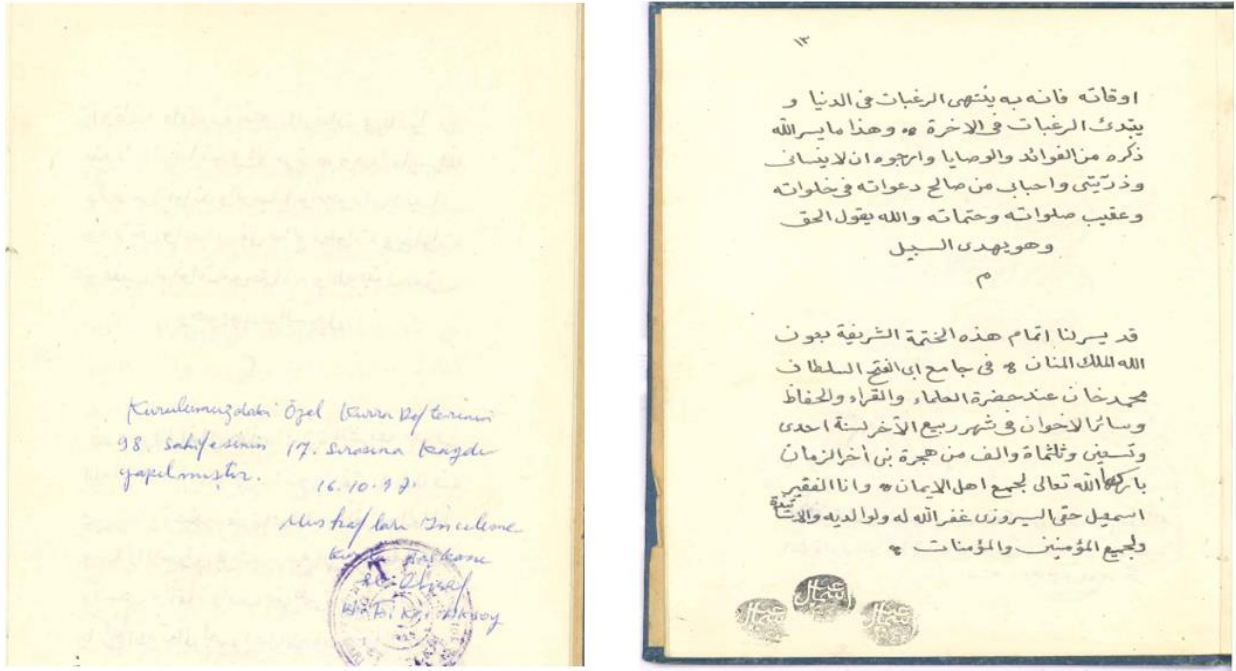 Kurulumuzdaki Özel Kurra Defterinin
98. sahifesinin 17. sırasına kaydı
yapılmıştır.
16.10.97.
Mushafları İnceleme
Kurulu Başkanı
١٣
اوقاته فانه به ينتهى الرغبات فى الدنيا و
يبتدئ الرغبات فى الاخرة وهذا ما يسر الله
ذكره من الفوائد والوصايا وارجوه ان لا ينسانى
وذريتى واحبابى من صالح دعواته فى خلواته
وعقيب صلواته وختماته والله يقول الحق
وهو يهدى السبيل
م
قد يسرنا اتمام هذه الختمة الشريفة بعون
الله الملك المنان فى جامع ابى الفتح السلطان
محمد خان عند حضرة العلماء والقراء والحفاظ
وسائر الاخوان فى شهر ربيع الآخر لسنة احدى
وتسعين وثلثمأة والف من هجرة نبى أخر الزمان
الله تعالى لجميع اهل الايمان وانا الفقير
اسمعيل حقى السيروزى غفر الله له ولوالديه والاساتيذة
ولجميع المؤمنين والمؤمنات